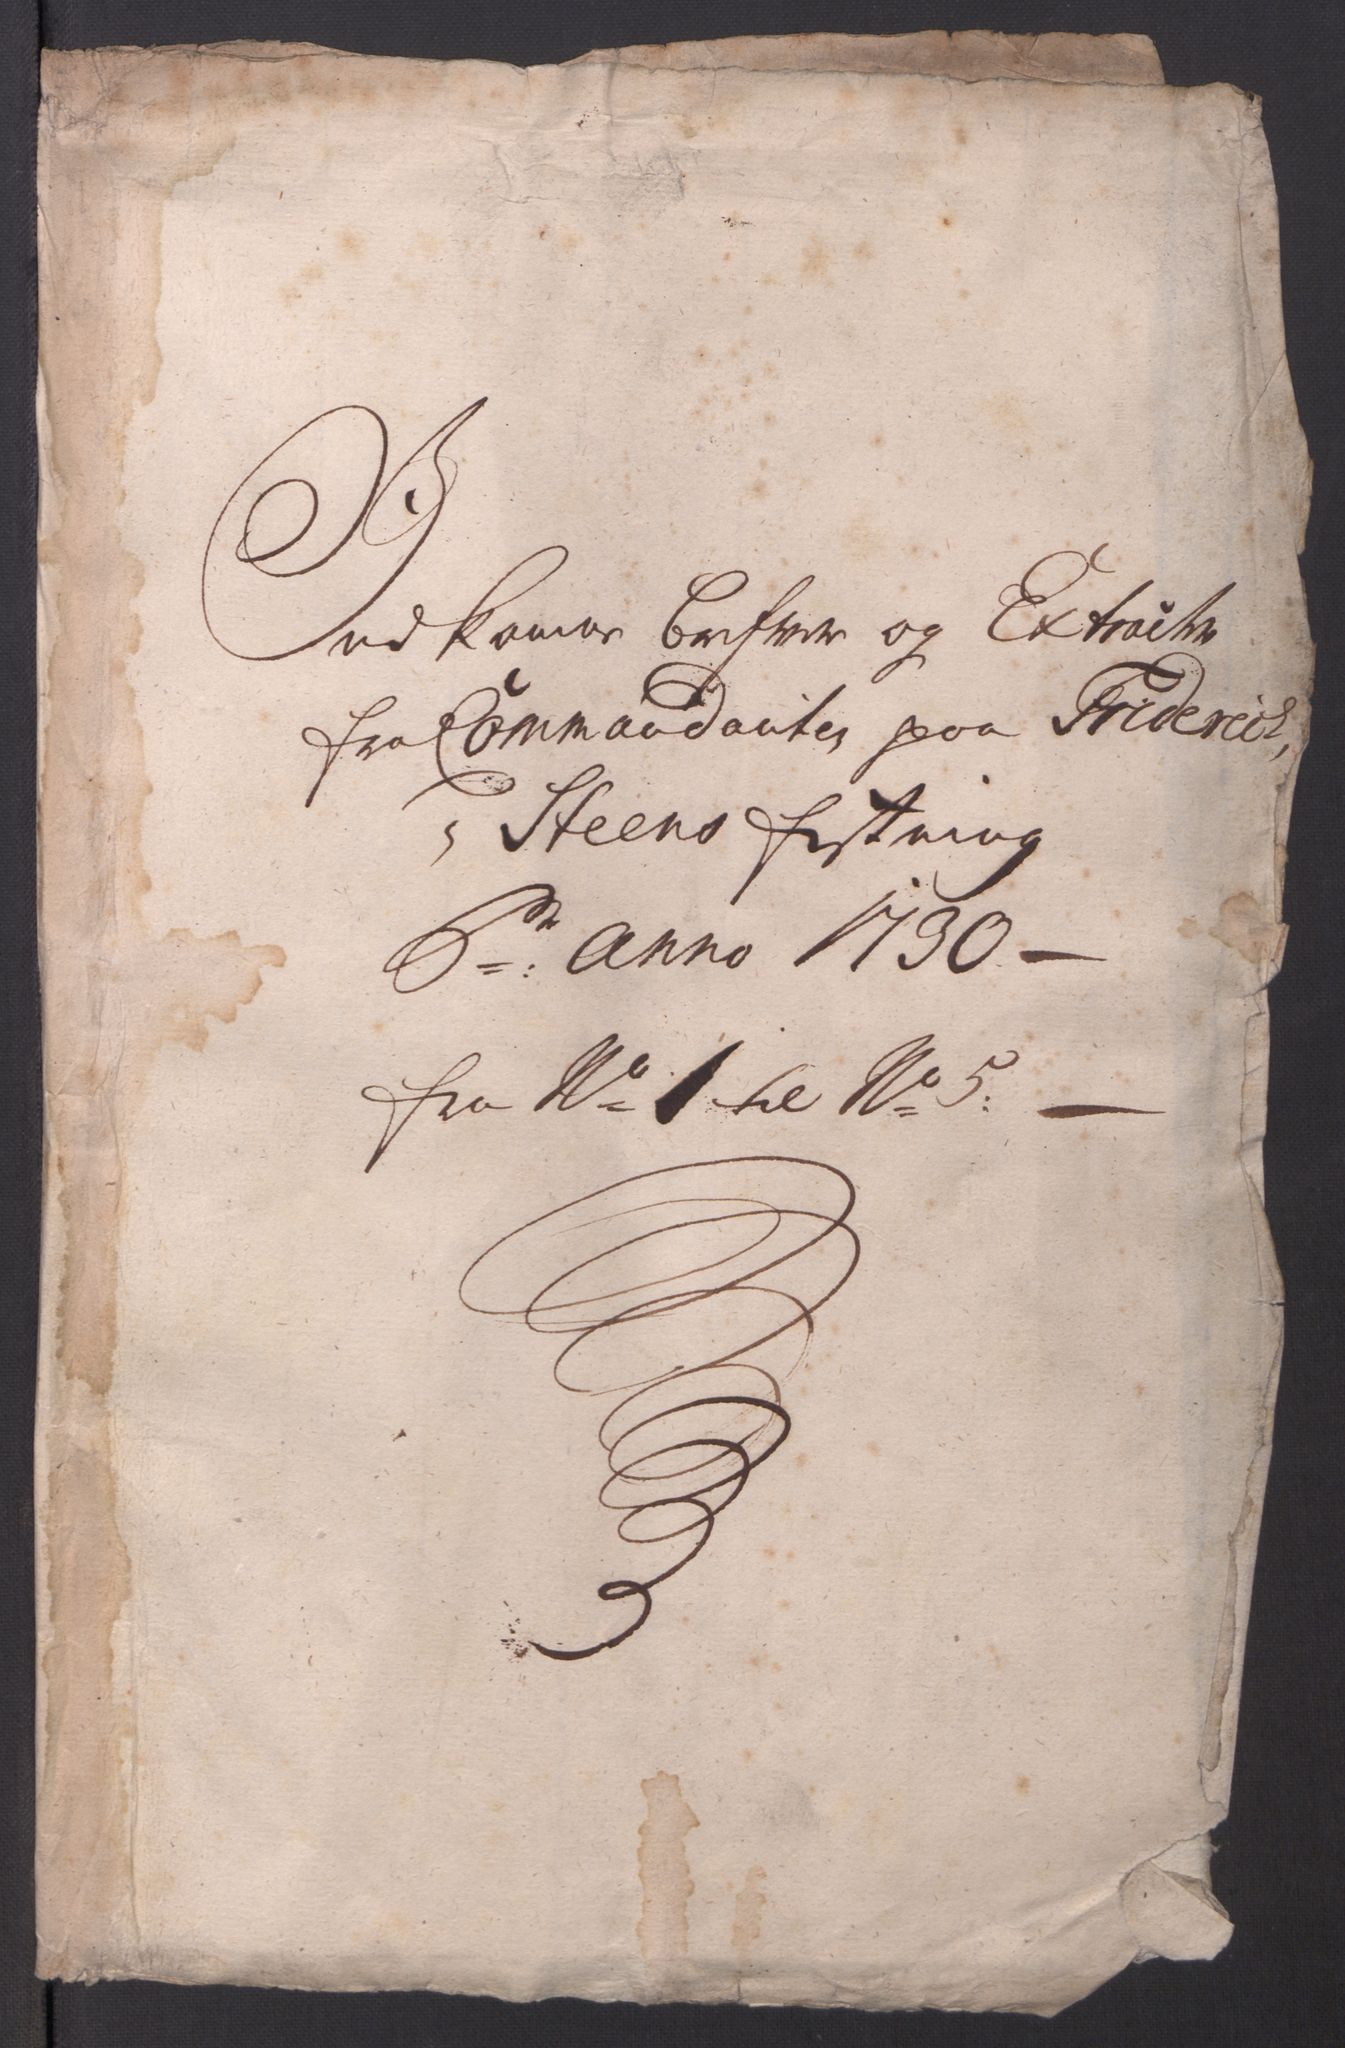 Indkomne brefver og Extracter
fra Commandanten paa Friderich,
, Steens festning
Pr: anno 1730 —
fra No 1 til No 5: —